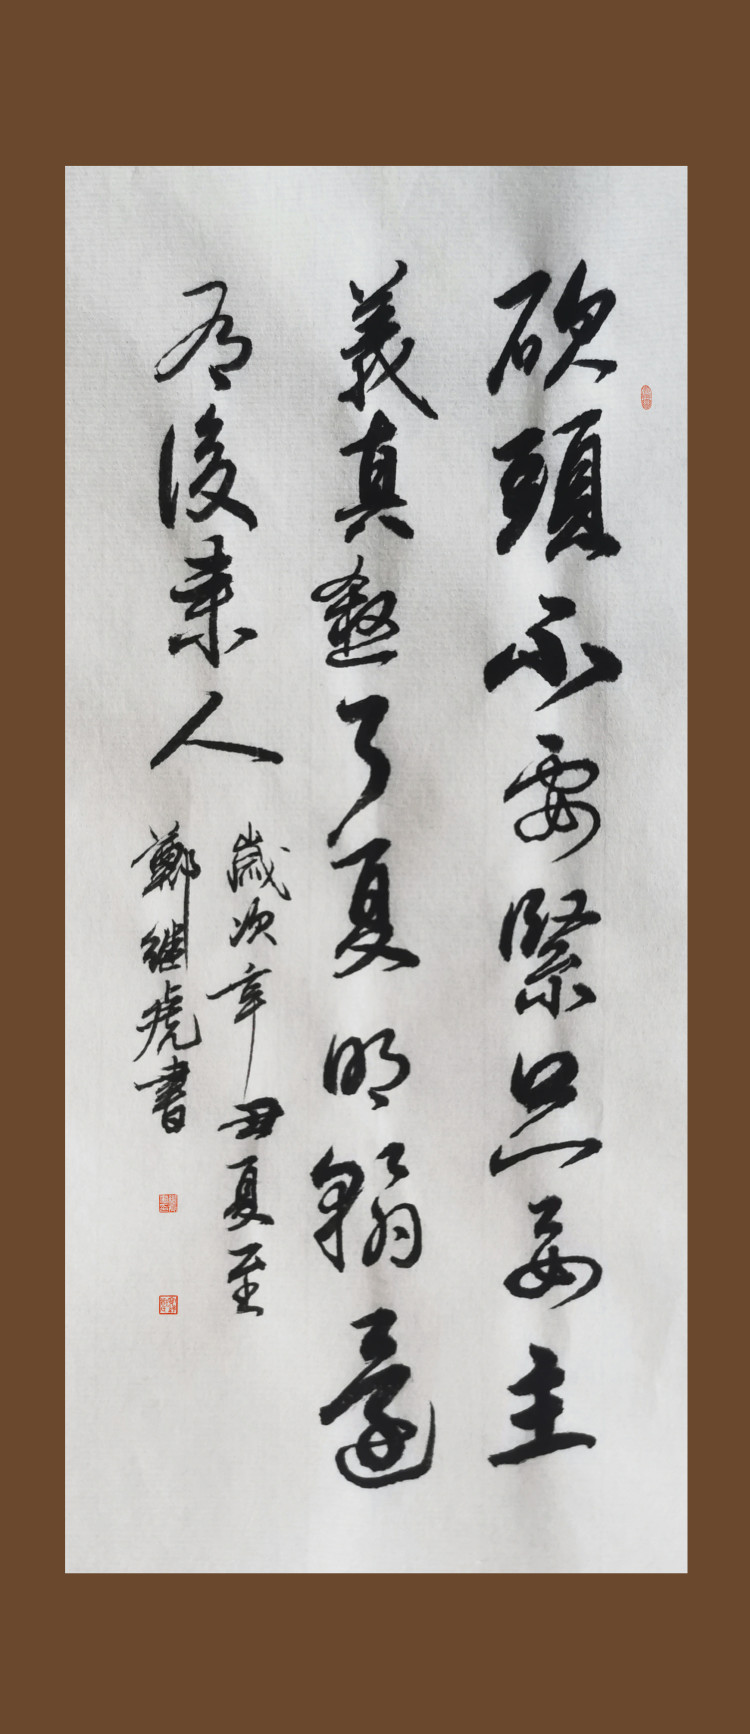 砍頭不要緊只要主
義真殺了夏明翰還
有後來人
歲次辛丑夏至
鄭继虎書